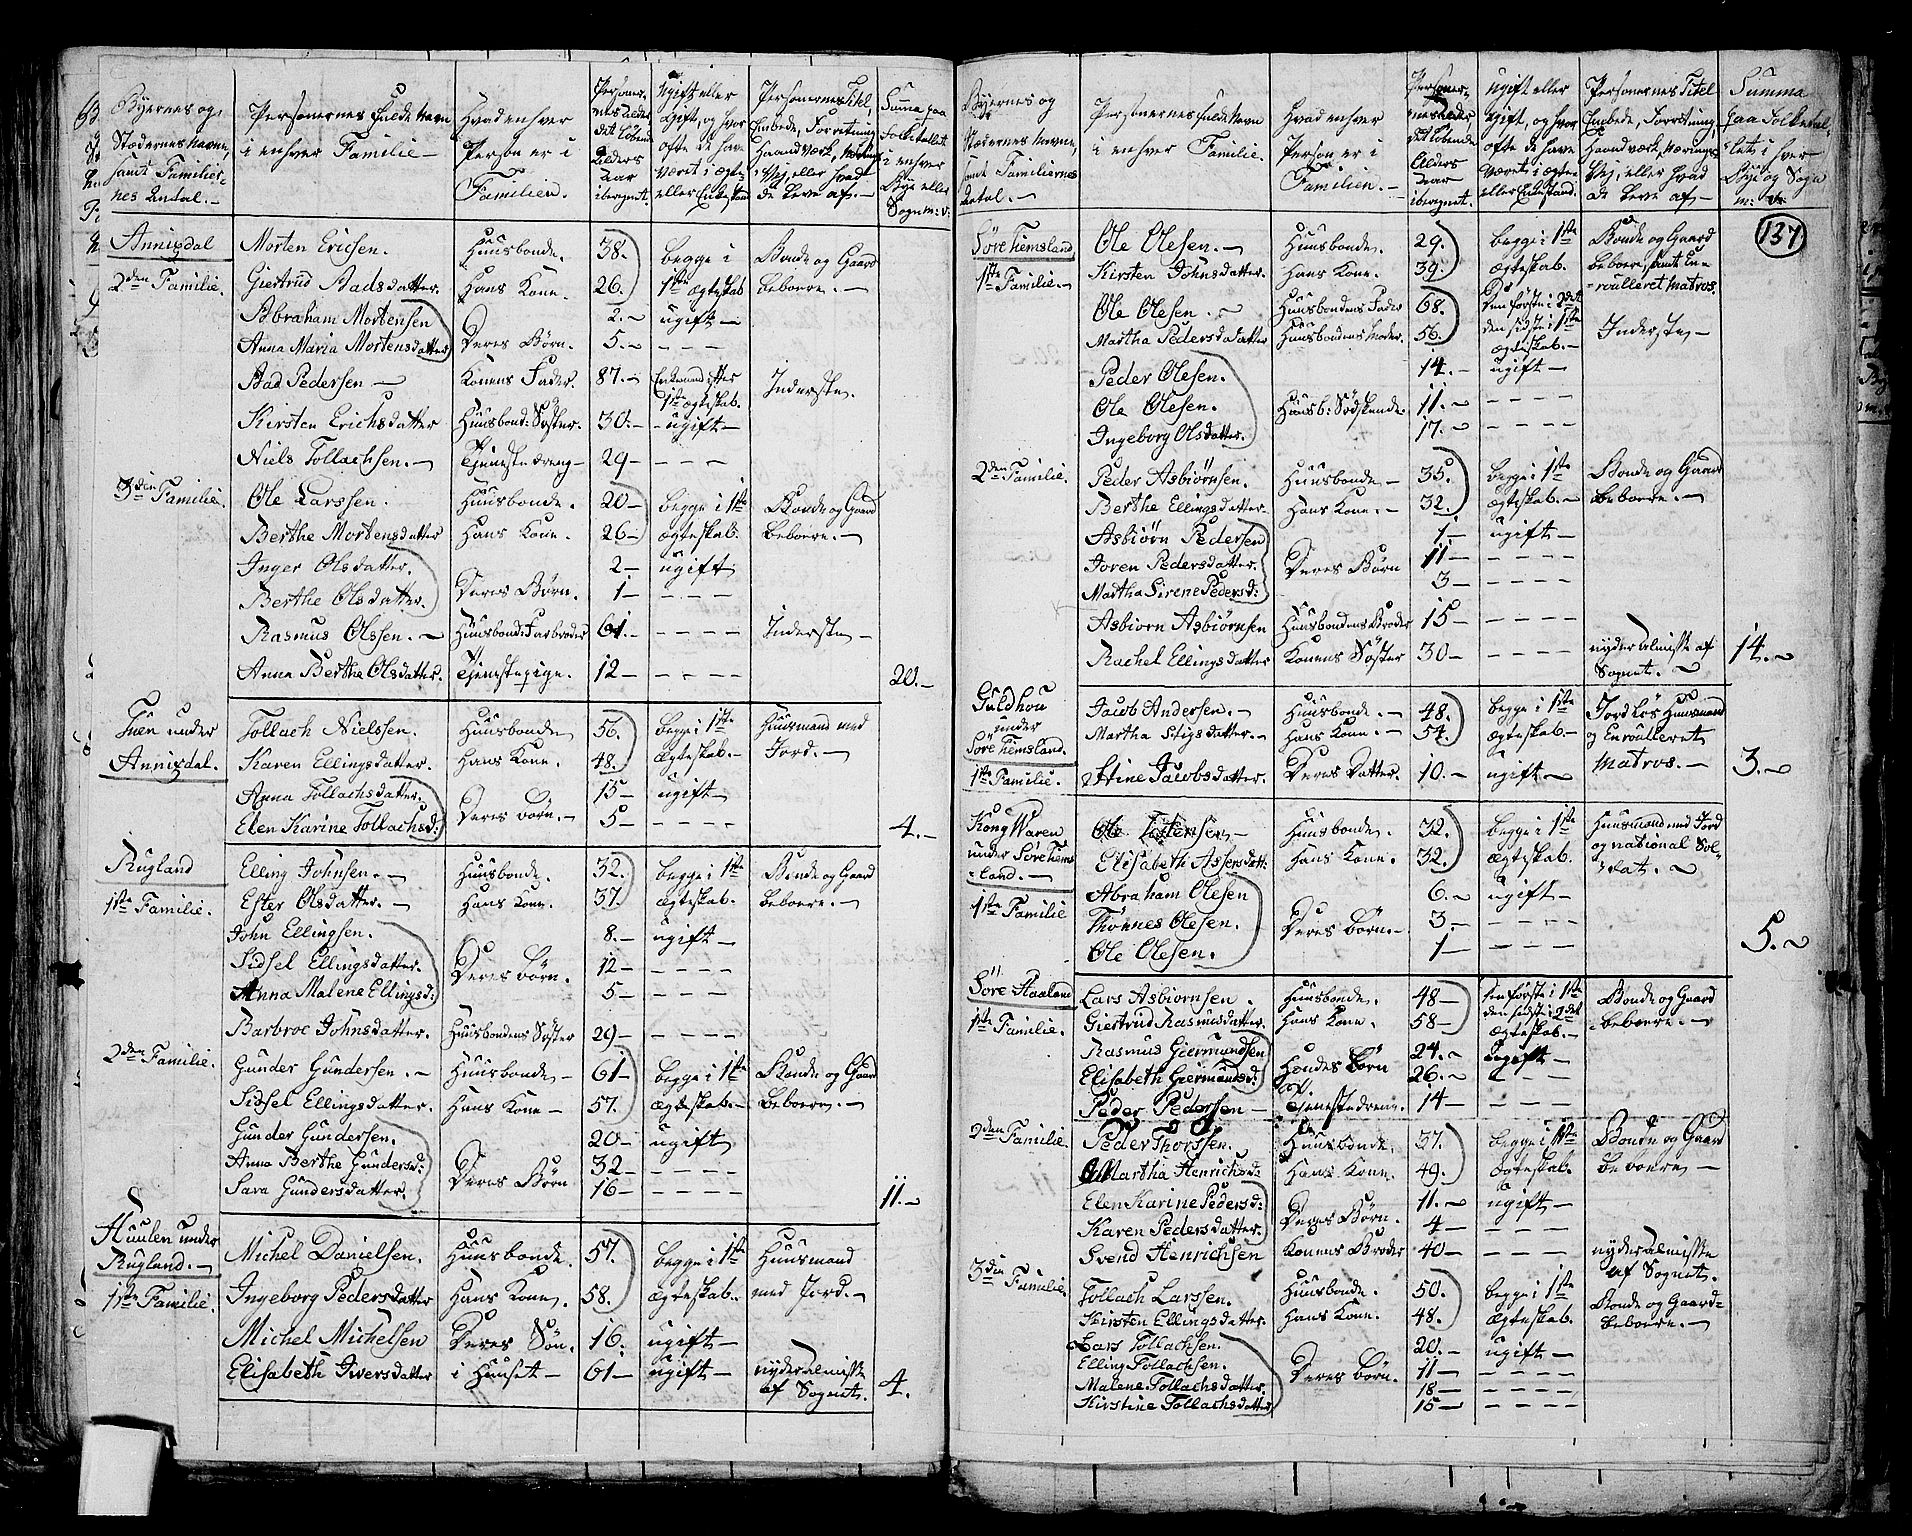 Byernes og Stædernes Navne, samt Familiernes Antal. — | Personernes fulde Navn i enhver Familie — | Hvad enhver Person er i Familien. — | Personernes Alder det løbende Alders Aar iberegnet. | Ugift eller Gift, og hvor ofte de have været i Ægte- eller Enkestand | Personernes Titel, Embede, Forretning, Haandværk, Nærings Vej, eller hvad de leve af. — | Summa paa Folketallet i enhver Bye eller Sogn m: v:
Annisdal
2den Familie. | Morten Ericsen. | Huusbonde. | 38. | begge i | Bonde og Gaard
Giertrud Aadsdatter. | Hans Kone. | 26. | 1ste Ægteskab | beboere. —
Abraham Mortensen | 2. — | ugift —
Anna Maria Mortensdatter | Deres Børn. | 5. — | — — —
Aad Pedersen — | Konens Fader. | 87. — | Enkemand efter 1ste Ægteskab. | Inderste.
Kirsten Erichsdatter | Huusbond: Søster. | 30. — | ugift —
Niels Tollachsen. — | Tjenestedreng — | 29 — | — — —
3die Familie. | Ole Larssen. | Huusbonde. | 20 — | begge i 1ste | Bonde og Gaard
Berthe Mortensdatter | Hans Kone. | 26 — | Ægteskab. | beboere. —
Inger Olsdatter. | 2 — | ugift
Berthe Olsdatter. | Deres Børn. | 1 — | — — —
Rasmus Olssen. — | Huusbond: Farbroder | 61. — | — — — — | Inderste —
Anna Berthe Olsdatter. | Tjenestepige. | 12 — | — — — — | 20. —
Tuen under Annisdal. | Tollach Nielssen. | Huusbonde | 56. | begge i 1ste | Huusmand med
Karen Ellingsdatter. | Hans Kone. | 48. | Ægteskab. — | Jord. —
Anna Tollachsdatter. | 15 — | ugift —
Elen Karine Tollachsd: | Deres børn. — | 5 — | — — — — | 4. —
Rugland
1ste Familie. | Elling Johnsen. — | Huusbonde. | 32. | begge i 1ste | Bonde og Gaard
Ester Olsdatter. — | Hans Kone. | 37. | Ægteskab. | beboere. —
John Ellingsen. | 8. — | ugift —
Sidsel Ellingsdatter. | Deres børn. | 12 — | — — — —
Anna Malene Ellingsd: | 5 — | — — — —
Barbroe Johnsdatter. | Huusbondens Søster | 29 — | — — — —
2den Familie. | Gunder Gundersen. — | Huusbonde — | 61 — | begge i 1ste | Bonde og Gaard
Sidsel Ellingsdatter. | Hans Kone — | 57. | Ægteskab. — | beboere. —
Gunder Gundersen. | 20 — | ugift —
Anna Berthe Gundersd: | Deres Børn | 32 — | — — — —
Sara Gundersdatter. | 16 — | — — — — | 11. —
Huulen under Rugland. —
1ste Familie. | Michel Danielsen. | Huusbonde. | 57. | begge i 1ste | Huusmand
Ingeborg Pedersdatter | Hans Kone. | 58. | Ægteskab. | med Jord. —
Michel Michelsen | Deres Søn. | 16. | ugift —
Elisabeth Iversdatter | i Huuset — | 61 — | ugift — | nyder Almisse af Sognet. | 4.
Byernes og Stædernes Navne, samt Familiernes Antal. — | Personernes fulde Navn i enhver Familie. | Hvad enhver Person er i Familien. — | Personernes Alder det løbende Alders Aar iberegnet. | Ugift eller Gift, og hvor ofte de have været i Ægte- eller Enkestand. | Personernes Titel Embede, Forretning, Haandværk, Nærings Vej, eller hvad de leve af — | Summa paa Folketallets i hver Bye og Sogn m: v:
137
Søre Hemsland
1ste Familie. — | Ole Olesen. — | Huusbonde. | 29. | begge i 1ste | Bonde og Gaard
Kirsten Johnsdatter. | Hans Kone. | 39. | Ægteskab. | beboere, samt Enroulleret Matros.
Ole Olesen. — | Huusbondens Fader | 68. | Den første i 2det
Martha Pedersdatter | Huusbondens Moder. | 56. | den sidste i 1ste Ægteskab. — | Inderste —
Peder Olesen. | 14. — | ugift —
Ole Olesen. | Huusb: Sødskende. | 11. — | — — — —
Ingeborg Olsdatter. | 17. — | — — — —
2den Familie. | Peder Asbiørnsen. | Huusbonde — | 35. | begge i 1ste | Bonde og Gaard
Berthe Ellingsdatter. | Hans Kone. — | 32. | Ægteskab. — | beboere. —
Asbiørn Pedersen | 1 — | ugift —
Joren Pedersdatter. | Deres Børn | 11 — | — — — —
Martha Sirene Pedersd: | 3 — | — — — —
Asbiorn Asbiørnsen | Huusbondens Broder | 15 — | — — — —
Rachel Ellingsdatter | Konens Søster | 30 — | — — — — | nyder Almisse af Sognet. — | 14. —
Guldhou under Søre Hemsland.
1ste Familie. | Jacob Andersen. — | Huusbonde. — | 48. | begge i 1ste | Jordløs Huusmand
Martha Stigsdatter. — | Hans Kone. — | 54. | Ægteskab — | og Enroulleret
Stine Jacobsdatter. | Deres Datter. | 10. — | ugift — | Matros. — | 3. —
Kong Waren under Søre Hemsland. —
1ste Familie | Ole Tostensen — | Huusbonde. | 32. | begge i 1ste | Huusmand med Jord
Elisabeth Assersdatt: | Hans Kone. | 32. | Ægteskab. | og national Soldat. —
Abraham Olesen | 6. — | ugift —
Thönnes Olesen. | Deres Børn — | 3. — | — — — —
Ole Olesen. | 1 — | — — — — | 5. —
Söre Haaland
1ste Familie. | Lars Asbiornsen. | Huusbonde. | 48 — | den første i 1ste | Bonde og Gaard
Giertrud Rasmusdatter. | Hans Kone. | 58 — | den sidste i 2det Ægteskab. — | beboere. —
Rasmus Giermundsen | 24. — | ugift —
Elisabeth Giermundsd: | Hendes Børn | 26. — | —
Peder Pedersen — | Tjenestedreng. | 14 — | — — —
2den Familie. | Peder Thorssen. | Huusbonde. | 37. | begge i 1ste | Bonde og Gaard
Martha Henrichsd: | Hans Kone. | 49. | Ægteskab. | beboere —
Elen Karine Pedersd: | 11. — | ugift —
Karen Pedersdatter. | Deres Børn. | 4 — | — — — —
Svend Henrichsen | Konens Broder | 40 — | — — — — | nyder Almisse af Sognet.
3die Familie. | Tollach Larssen. | Huusbonde. | 50. | begge i 1ste | Bonde og Gaard-
Kirsten Ellingsdatter. | Hans Kone. | 48. | Ægteskab. | beboere. —
Lars Tollachsen. | 20. — | ugift —
Elling Tollachsen. | Deres børn. | 11 — | — — — —
Malene Tollachsdatter. | 18 — | — — — —
Kirstine Tollachsdatter | 15 — | — — — —